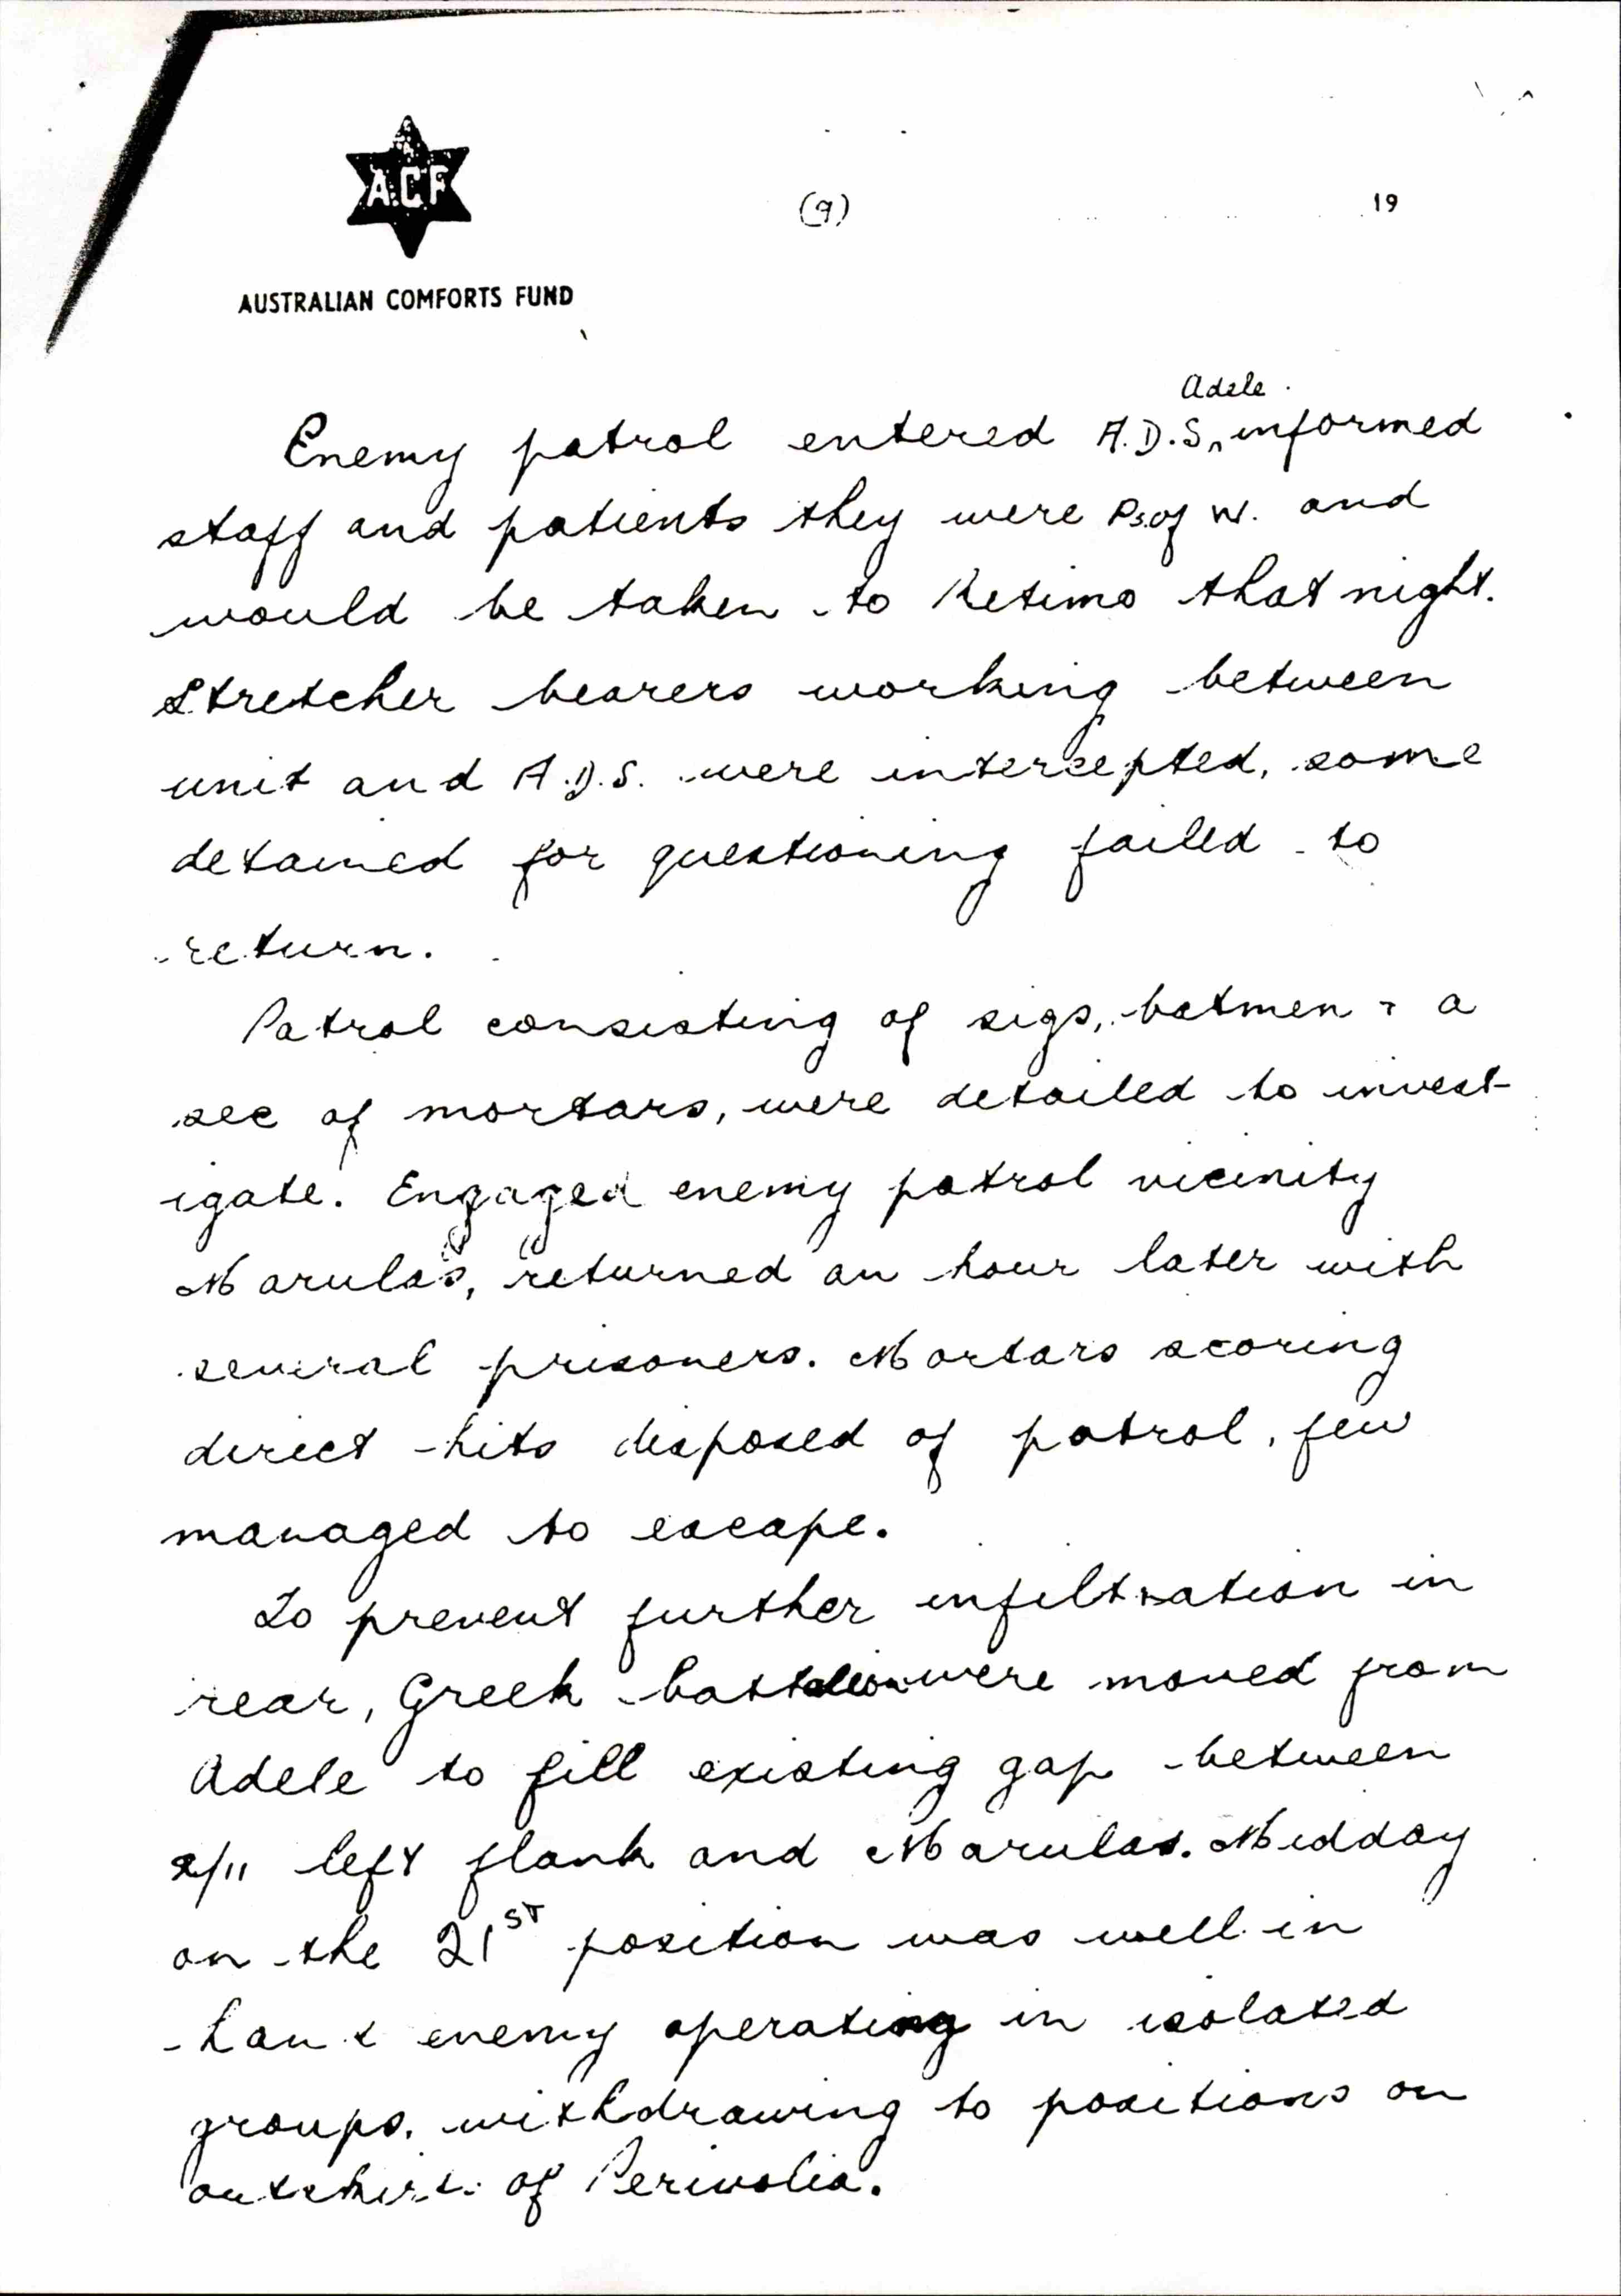 A.C.F
(9)
19
AUSTRALIAN COMFORTS FUND
Adele
Enemy patrol entered A.D.S, informed
staff and patients they were Ps.of W. and
would be taken to Retimo that night.
Stretcher bearers working between
unit and A.D.S. were intercepted, some
detained for questioning failed to
return.
Patrol consisting of sigs, batmen & a
sec of mortars, were detailed to invest-
igate. Engaged enemy patrol vicinity
Marulas, returned an hour later with
several prisoners. Mortars scoring
direct hits disposed of patrol, few
managed to escape.
To prevent further infiltration in
rear, Greek battalion were moved from
Adele to fill existing gap between
2/11 left flank and Marulas. Midday
on the 21ST position was well in
hand enemy operating in isolated
groups. withdrawing to positions on
outskirts of Perivolia.